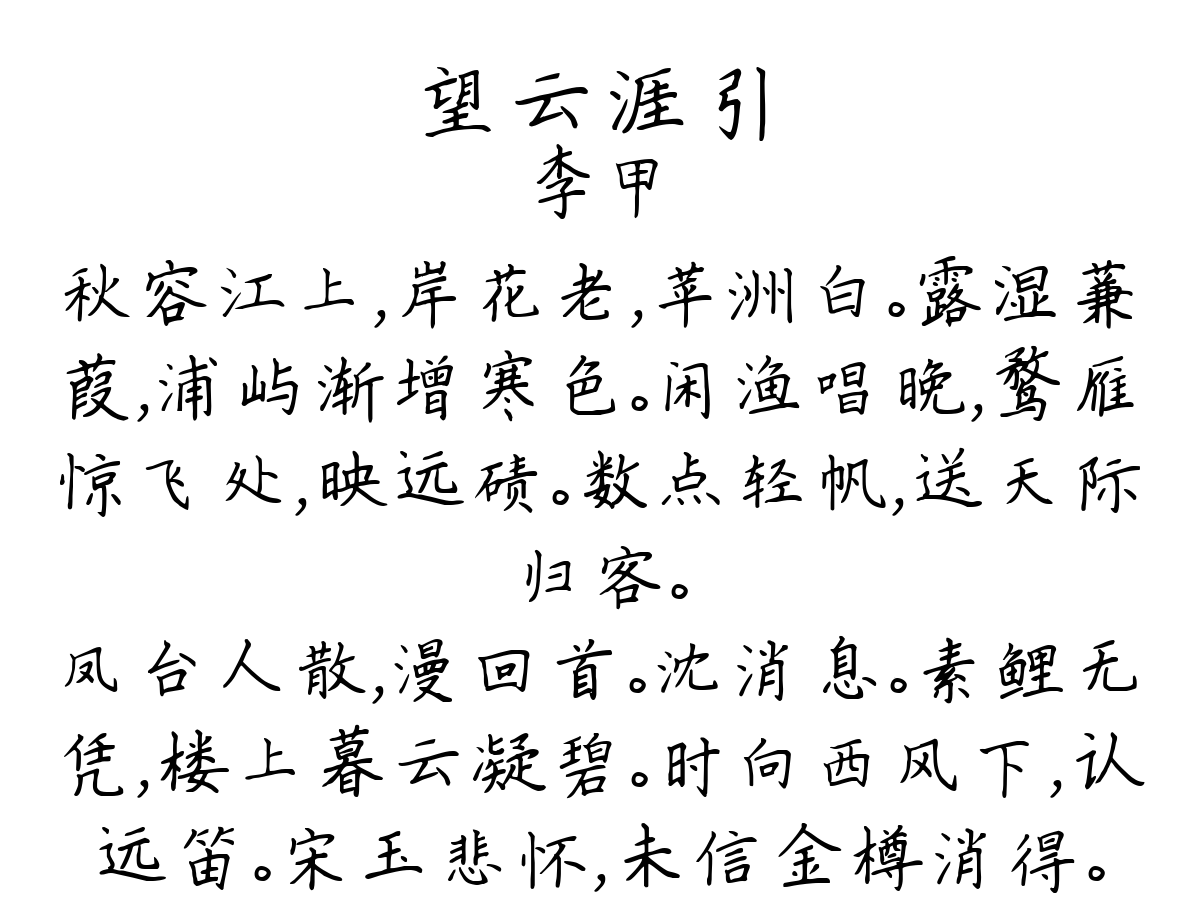 望云涯引
李甲
秋容江上,岸花老,苹洲白。露湿蒹
葭,浦屿渐增寒色。闲渔唱晚,鹜雁
惊飞处,映远碛。数点轻帆,送天际
归客。
凤台人散,漫回首。沈消息。素鲤无
凭,楼上暮云凝碧。时向西风下,认
远笛。宋玉悲怀,未信金樽消得。